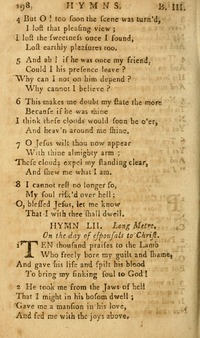 198. HYMNS. B. III.
4 But O! too soon the scene was turn'd,
I lost that pleasing view;
I lost the sweetness once I found,
Lost earthly pleasures too.
5 And ah! if he was once my friend,
Could I his presence leave?
Why can I not on him depend?
Why cannot I believe?
6 This makes me doubt my state the more
Because if he was mine
I think these clouds would soon be o'er,
And heav'n around me shine.
7 O Jesus wilt thou now appear
With thine almighty arm;
These clouds expel my standing clear,
And shew me what I am.
8 I cannot rest no longer so,
My soul rist'd over hell;
O, blessed Jesus, let me know
That I with thee shall dwell.
HYMN LII. Long Metre.
On the day of espousals to Christ.
1 TEN thousand praises to the Lamb
Who freely bore my guilt and shame,
And gave his life and spilt his blood
To bring my sinking soul to God!
2 He took me from the Jaws of hell
That I might in his bosom dwell;
Gave me a mansion in his love,
And fed me with the joys above.